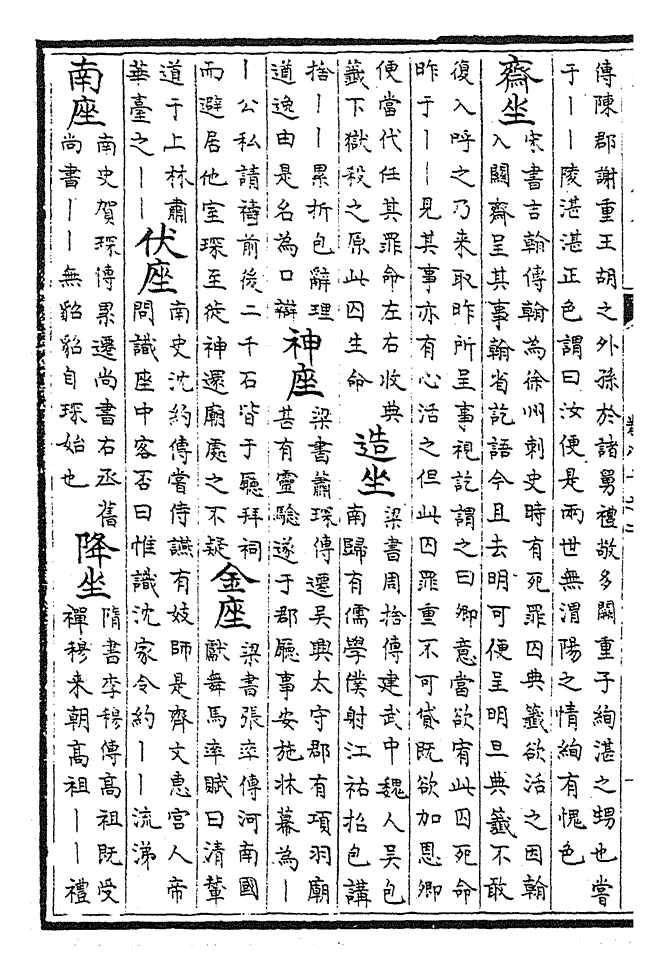 傳陳郡謝重王胡之外孫於諸舅禮敬多闕重子絢湛之甥也嘗
于——陵湛湛正色謂曰汝便是兩世無渭陽之情絢有愧色
齋坐
宋書吉翰傳翰為徐州刺史時有死罪囚典籖欲活之因翰
入關齋呈其事翰省訖語令且去明可便呈明旦典籖不敢
復入呼之乃来取昨所呈事視訖謂之曰卿意當欲宥此囚死命
昨于——見其事亦有心活之但此囚罪重不可貸既欲加恩卿
便當代任其罪命左右收典
籖下獄殺之原此囚生命
造坐
梁書周捨傳建武中魏人吳包
南歸有儒學僕射江祏招包講
捨——累折包辭理
道逸由是名為口辯
神座
梁書蕭琛傳遷吳興太守郡有項羽廟
甚有靈驗遂于郡廳事安施牀幕為—
—公私請禱前後二千石皆于廳拜祠
而避居他室琛至徙神還廟處之不疑
金座
梁書張率傳河南國
獻舞馬率賦曰清輦
道于上林肅
華臺之——
伏座
南史沈約傳當侍讌有妓師是齊文惠宫人帝
問識座中客否曰惟識沈家令約——流涕
南座
南史賀琛傳累遷尚書右丞舊
尚書——無貂貂自琛始也
降坐
隋書李穆傳高祖既受
禪穆来朝高祖——禮